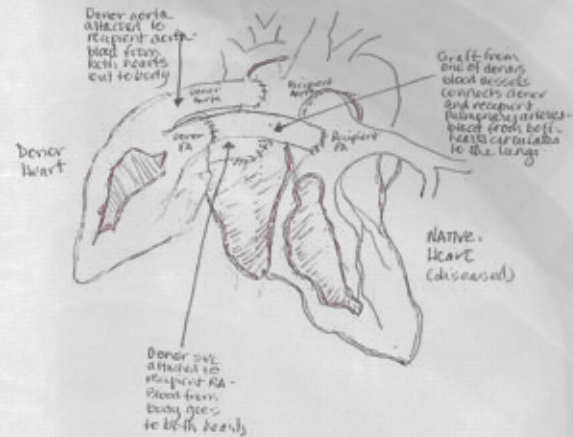 Donor aorta
attached to
recipient aorta-
blood from
both hearts
out to body
Donor
Aorta
Recipient
Aorta
Graft from
one of donors
blood vessels
connects donor
and recipient
Pulmonary arteries-
blood from both
hearts circulates
to the lungs
Donor
PA
Recipient
PA
Donor
Heart
NATIVE
Heart
(diseased)
Donor SVC
attached to
recipient RA -
Blood from
body goes
to both hearts